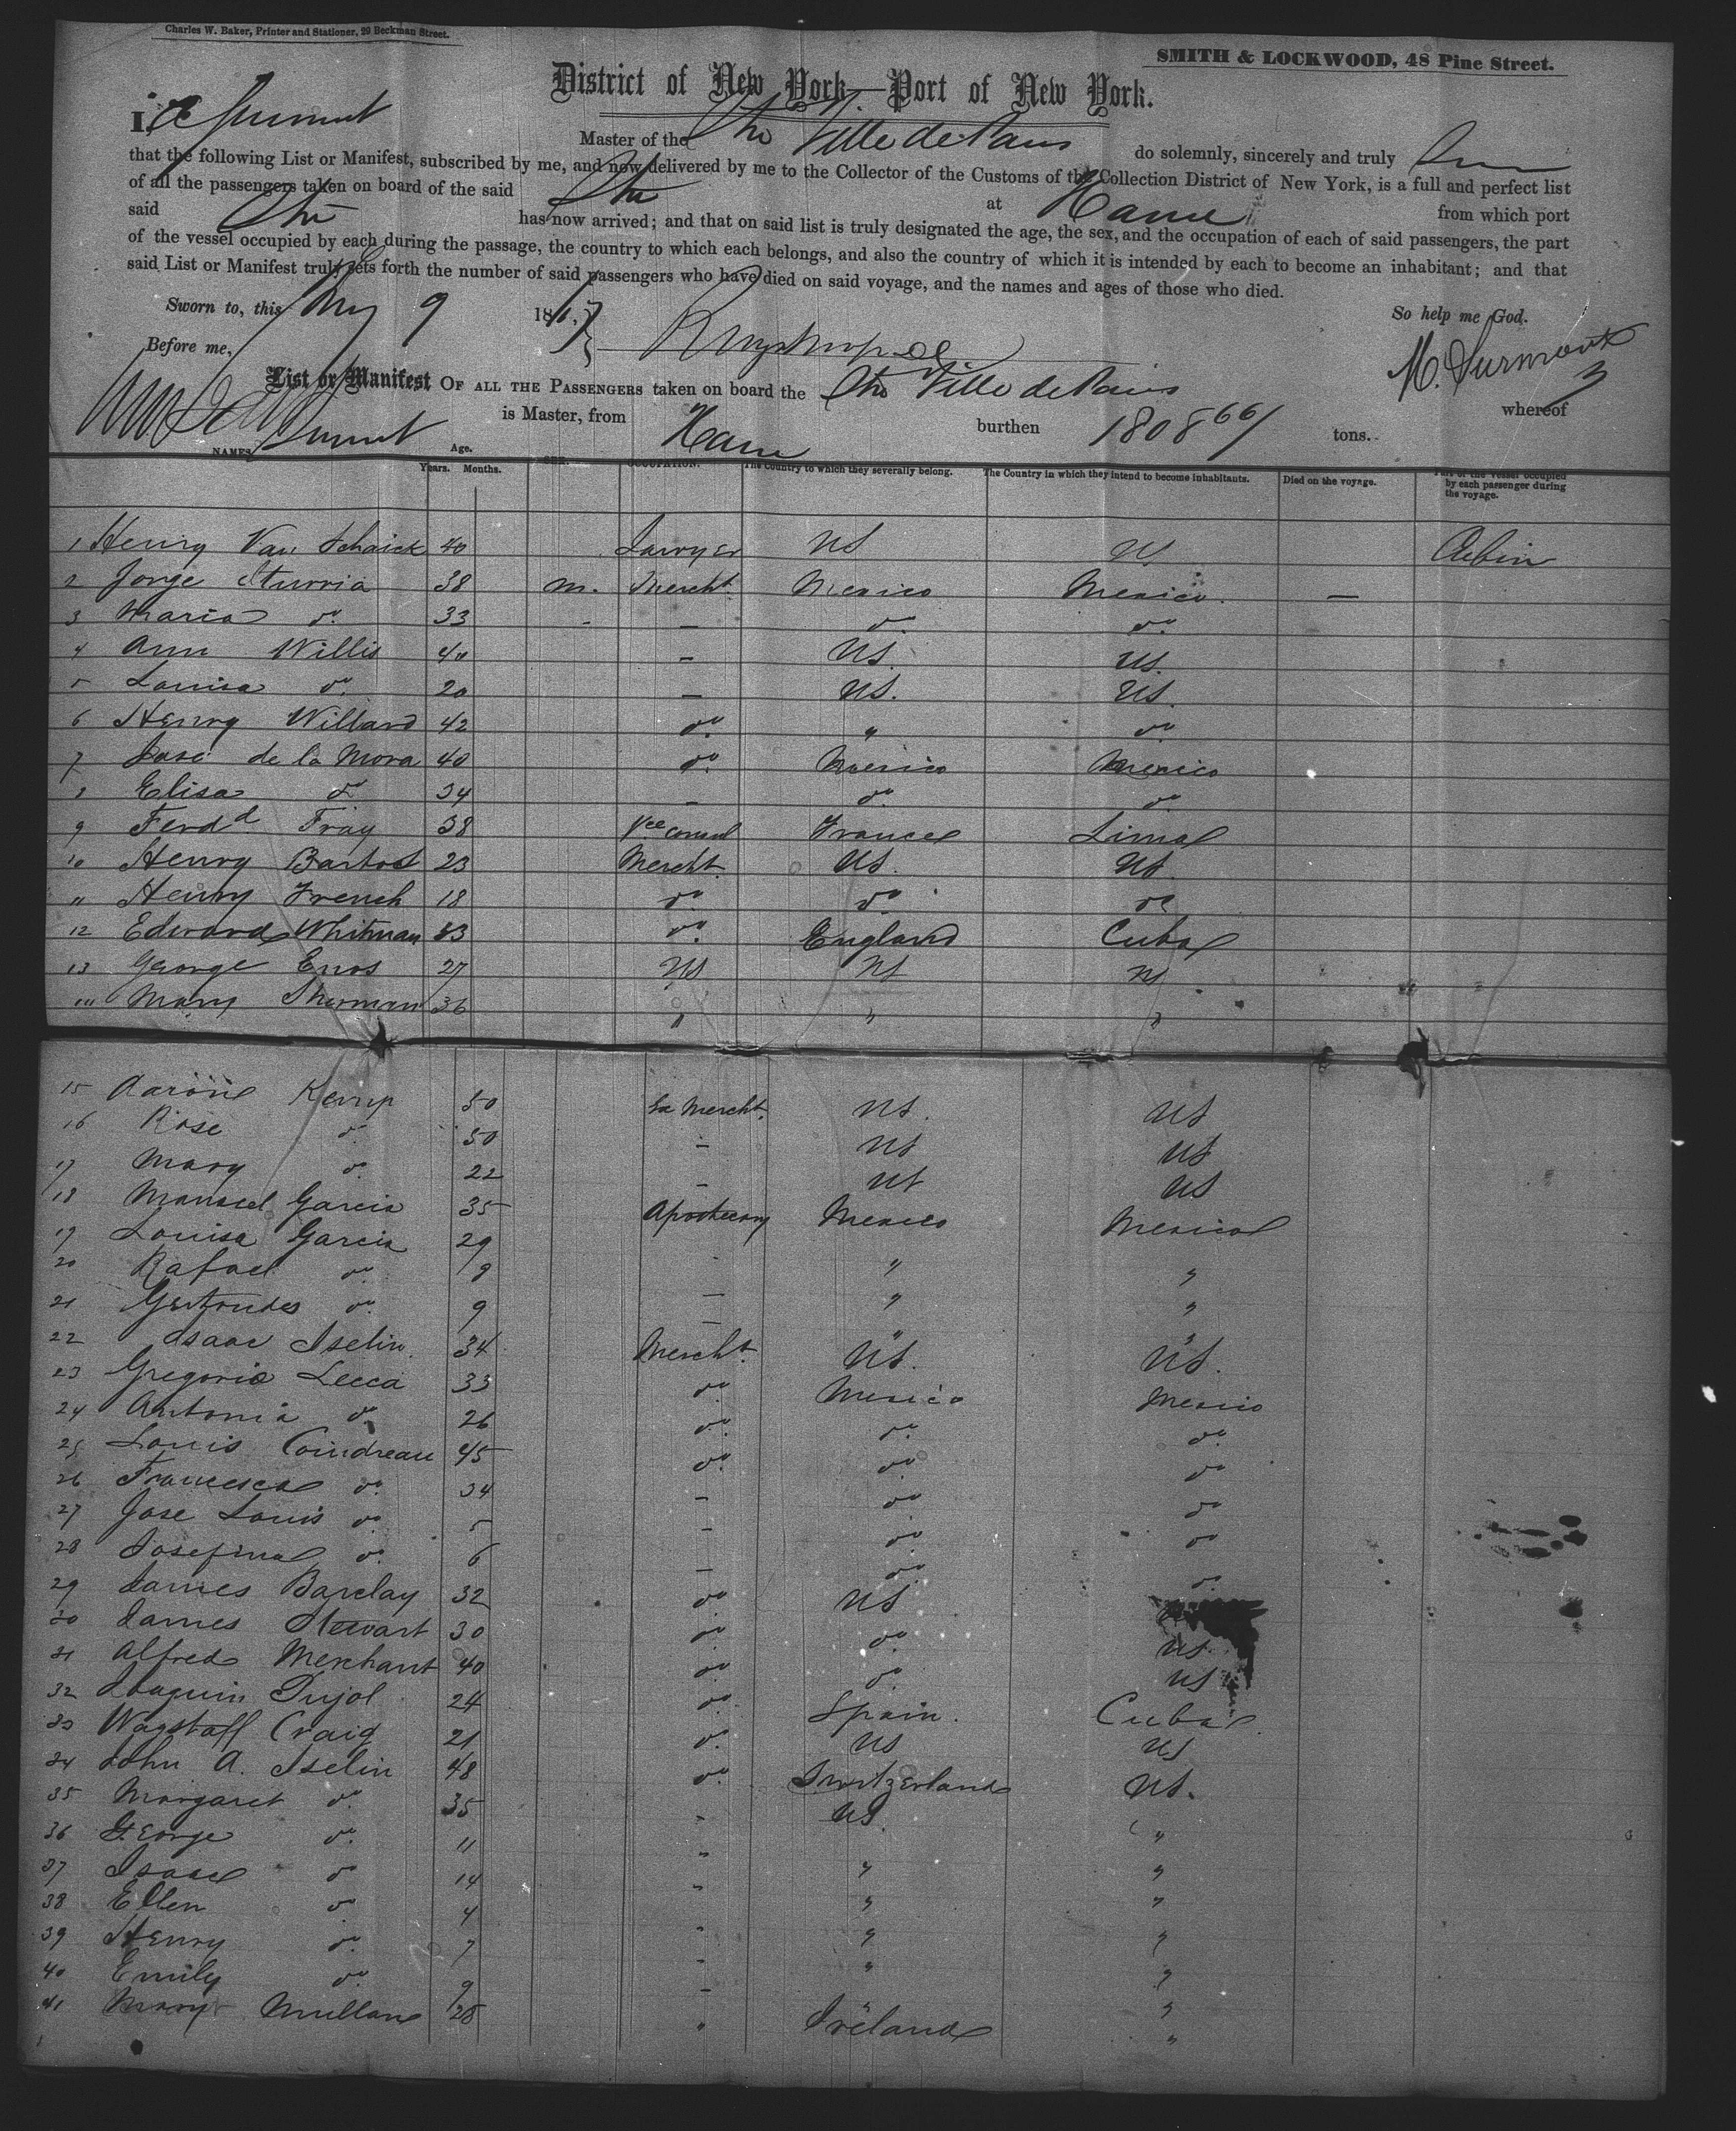 Charles W. Baker, Printer and Stationer, 29 Beekman Street.
SMITH & LOCKWOOD, 48 Pine Street.
District of New York—Port of New York.
I, Surmont Master of the Str Ville de Paris do solemnly, sincerely and truly
that the following List or Manifest, subscribed by me, and now delivered by me to the Collector of the Customs of the Collection District of New York, is a full and perfect list
of all the passengers taken on board of the said Str at Havre from which port
said Str has now arrived; and that on said list is truly designated the age, the sex, and the occupation of each of said passengers, the part
of the vessel occupied by each during the passage, the country to which each belongs, and also the country of which it is intended by each to become an inhabitant; and that
said List or Manifest truly sets forth the number of said passengers who have died on said voyage, and the names and ages of those who died.
Sworn to, this May 9 1867 So help me God.
Before me, M. Surmont
List or Manifest OF ALL THE PASSENGERS taken on board the Str Ville de Paris whereof
Surmont is Master, from Havre burthen 1808 66/ tons.
NAMES. Age. Years. Months. SEX. OCCUPATION. The Country to which they severally belong. The Country in which they intend to become inhabitants. Died on the voyage. Part of the vessel occupied by each passenger during the voyage.
1 Henry Van Schaick 40 Lawyer US US Cabin
2 Jorge Iturria 38 m. Mercht. Mexico Mexico. —
3 Maria do. 33 - — do. do.
4 Ann Willis 40 — US. US.
5 Louisa do. 20 — US. US.
6 Henry Willard 42 do. " do
7 José de la Mora 40 do. Mexico Mexico
8 Elisa do 34 — do. do.
9 Ferdd Fray 38 Vce consul France Lima
10 Henry Bartol 23 Mercht. US. US.
11 Henry French 18 do. do. do
12 Edward Whitman 33 do. England Cuba
13 George Enos 27 US US US
14 Mary Sherman 36 " " "
15 Aaron Kemp 50 Ex Mercht. US. US
16 Rose do. 50 — US US
17 Mary do. 22 — US US
18 Manuel Garcia 35 Apothecary Mexico Mexico
19 Louisa Garcia 29 - " "
20 Rafael do. 9 — " "
21 Gertrudes do. 9 — " "
22 Isaac Iselin. 34 Mercht. US. US.
23 Gregorio Lecca 33 do. Mexico Mexico
24 Antonia do. 26 do. do. do.
25 Louis Coindreau 45 do. do. do
26 Francesca do. 34 — do do
27 Jose Louis do. 5 — do. do
28 Josefina do. 6 — do. do.
29 James Barclay 32 do. US
30 James Stewart 30 do. do. US.
31 Alfred Merchant 40 do. do. US
32 Joaquin Pujol 24 do. Spain. Cuba.
33 Wagstaff Craig 21 do. US US
34 John A. Iselin 48 do. Switzerland US.
35 Margaret do. 35 - US. "
36 George do. 11 " " "
37 Isaac do 14 - " "
38 Ellen do. 4 - " "
39 Henry do. 7 - " "
40 Emily do. 9 — " "
41 Mary Mullane 28 " Ireland "